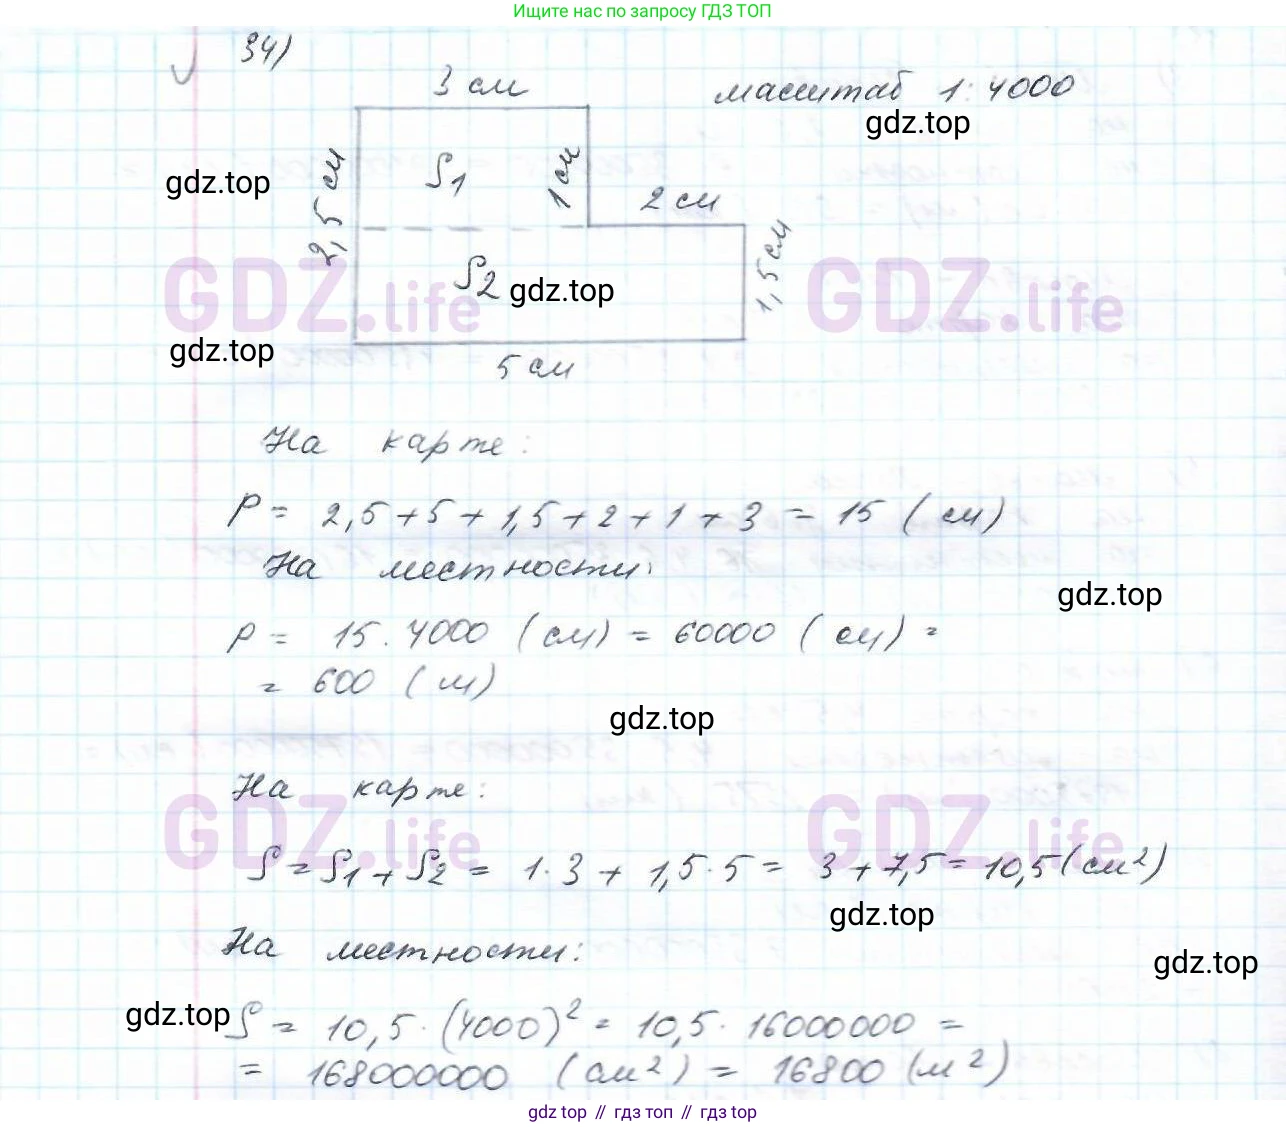 Ищите нас по запросу ГДЗ ТОП
34)
3 см
масштаб 1:4000
gdz.top
gdz.top
2,5 см
S1
1 см
2 см
S2
gdz.top
1,5 см
GDZ.life
GDZ.life
gdz.top
5 см
На карте:
P = 2,5 + 5 + 1,5 + 2 + 1 + 3 = 15 (см)
На местности:
gdz.top
P = 15 · 4000 (см) = 60000 (см) =
= 600 (м)
gdz.top
На карте:
GDZ.life
GDZ.life
S = S1 + S2 = 1 · 3 + 1,5 · 5 = 3 + 7,5 = 10,5 (см²)
gdz.top
На местности:
gdz.top
gdz.top
S = 10,5 · (4000)² = 10,5 · 16000000 =
= 168000000 (см²) = 16800 (м²)
gdz top // гдз топ // гдз top